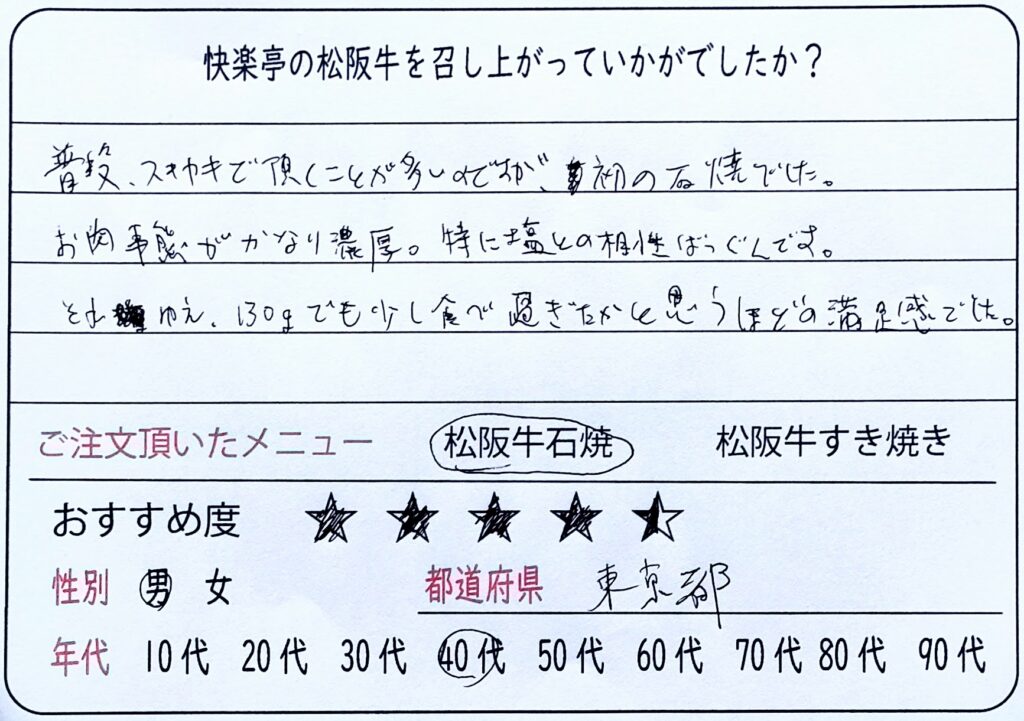 快楽亭の松阪牛を召し上がっていかがでしたか？
普段、スキヤキで頂くことが多いのですが、初の石焼でした。
お肉事態がかなり濃厚。特に塩との相性ばっぐんです。
それゆえ、130gでも少し食べ過ぎたかと思うほどの満足感でした。
ご注文頂いたメニュー 松阪牛石焼 松阪牛すき焼き
おすすめ度 ★★★★★
性別 男 女 都道府県 東京都
年代 10代 20代 30代 40代 50代 60代 70代 80代 90代